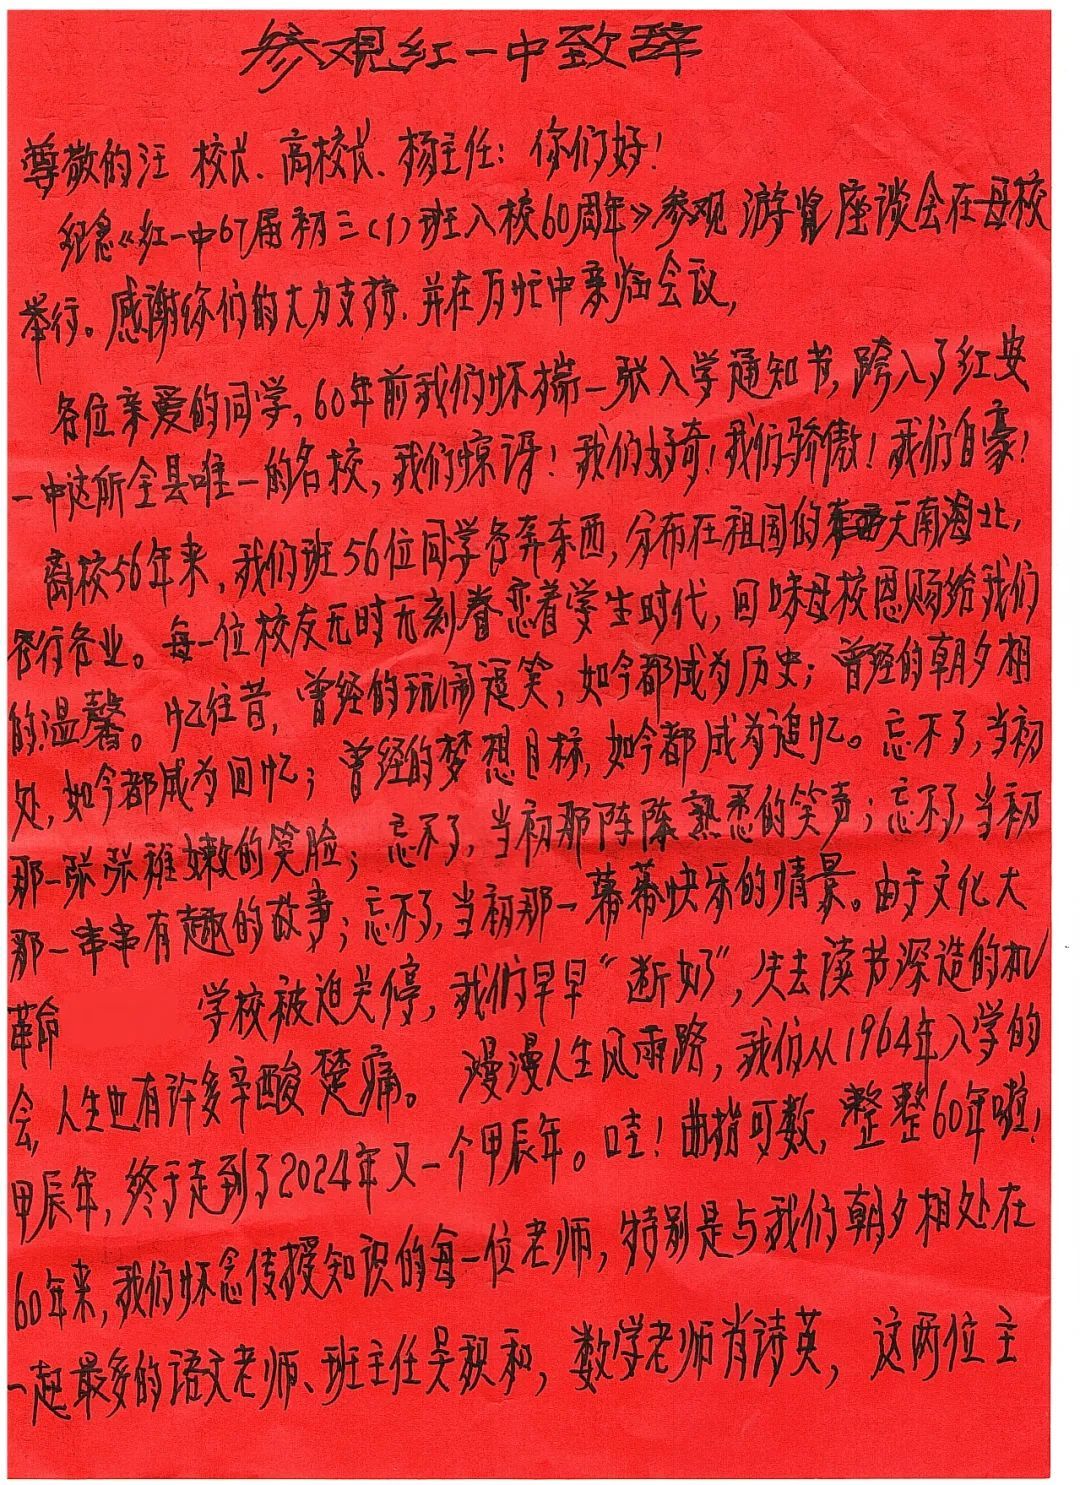 参观红一中致辞
尊敬的汪 校长、高校长、杨主任：你们好！
纪念《红一中67届初三(1)班入校60周年》参观游览座谈会在母校
举行。感谢你们的大力支持，并在万忙中亲临会议，
各位亲爱的同学，60年前我们怀揣一张入学通知书，跨入了红安
一中这所全县唯一的名校，我们惊讶！我们好奇！我们骄傲！我们自豪！
离校56年来，我们班56位同学各奔东西，分布在祖国的天南海北，
各行各业。每一位校友无时无刻眷恋着学生时代，回味母校恩赐给我们
的温馨。忆往昔，曾经的玩闹逗笑，如今都成为历史；曾经的朝夕相
处，如今都成为回忆；曾经的梦想目标，如今都成为追忆。忘不了，当初
那一张张稚嫩的笑脸；忘不了，当初那阵阵熟悉的笑声；忘不了，当初
那一串串有趣的故事；忘不了，当初那一幕幕快乐的情景。由于文化大
革命 学校被迫关停，我们早早“断奶”，失去读书深造的机
会，人生也有许多辛酸楚痛。漫漫人生风雨路，我们从1964年入学的
甲辰年，终于走到了2024年又一个甲辰年。哇！曲指可数，整整60年啦！
60年来，我们怀念传授知识的每一位老师，特别是与我们朝夕相处在
一起最多的语文老师、班主任吴 和，数学老师肖诗英，这两位主